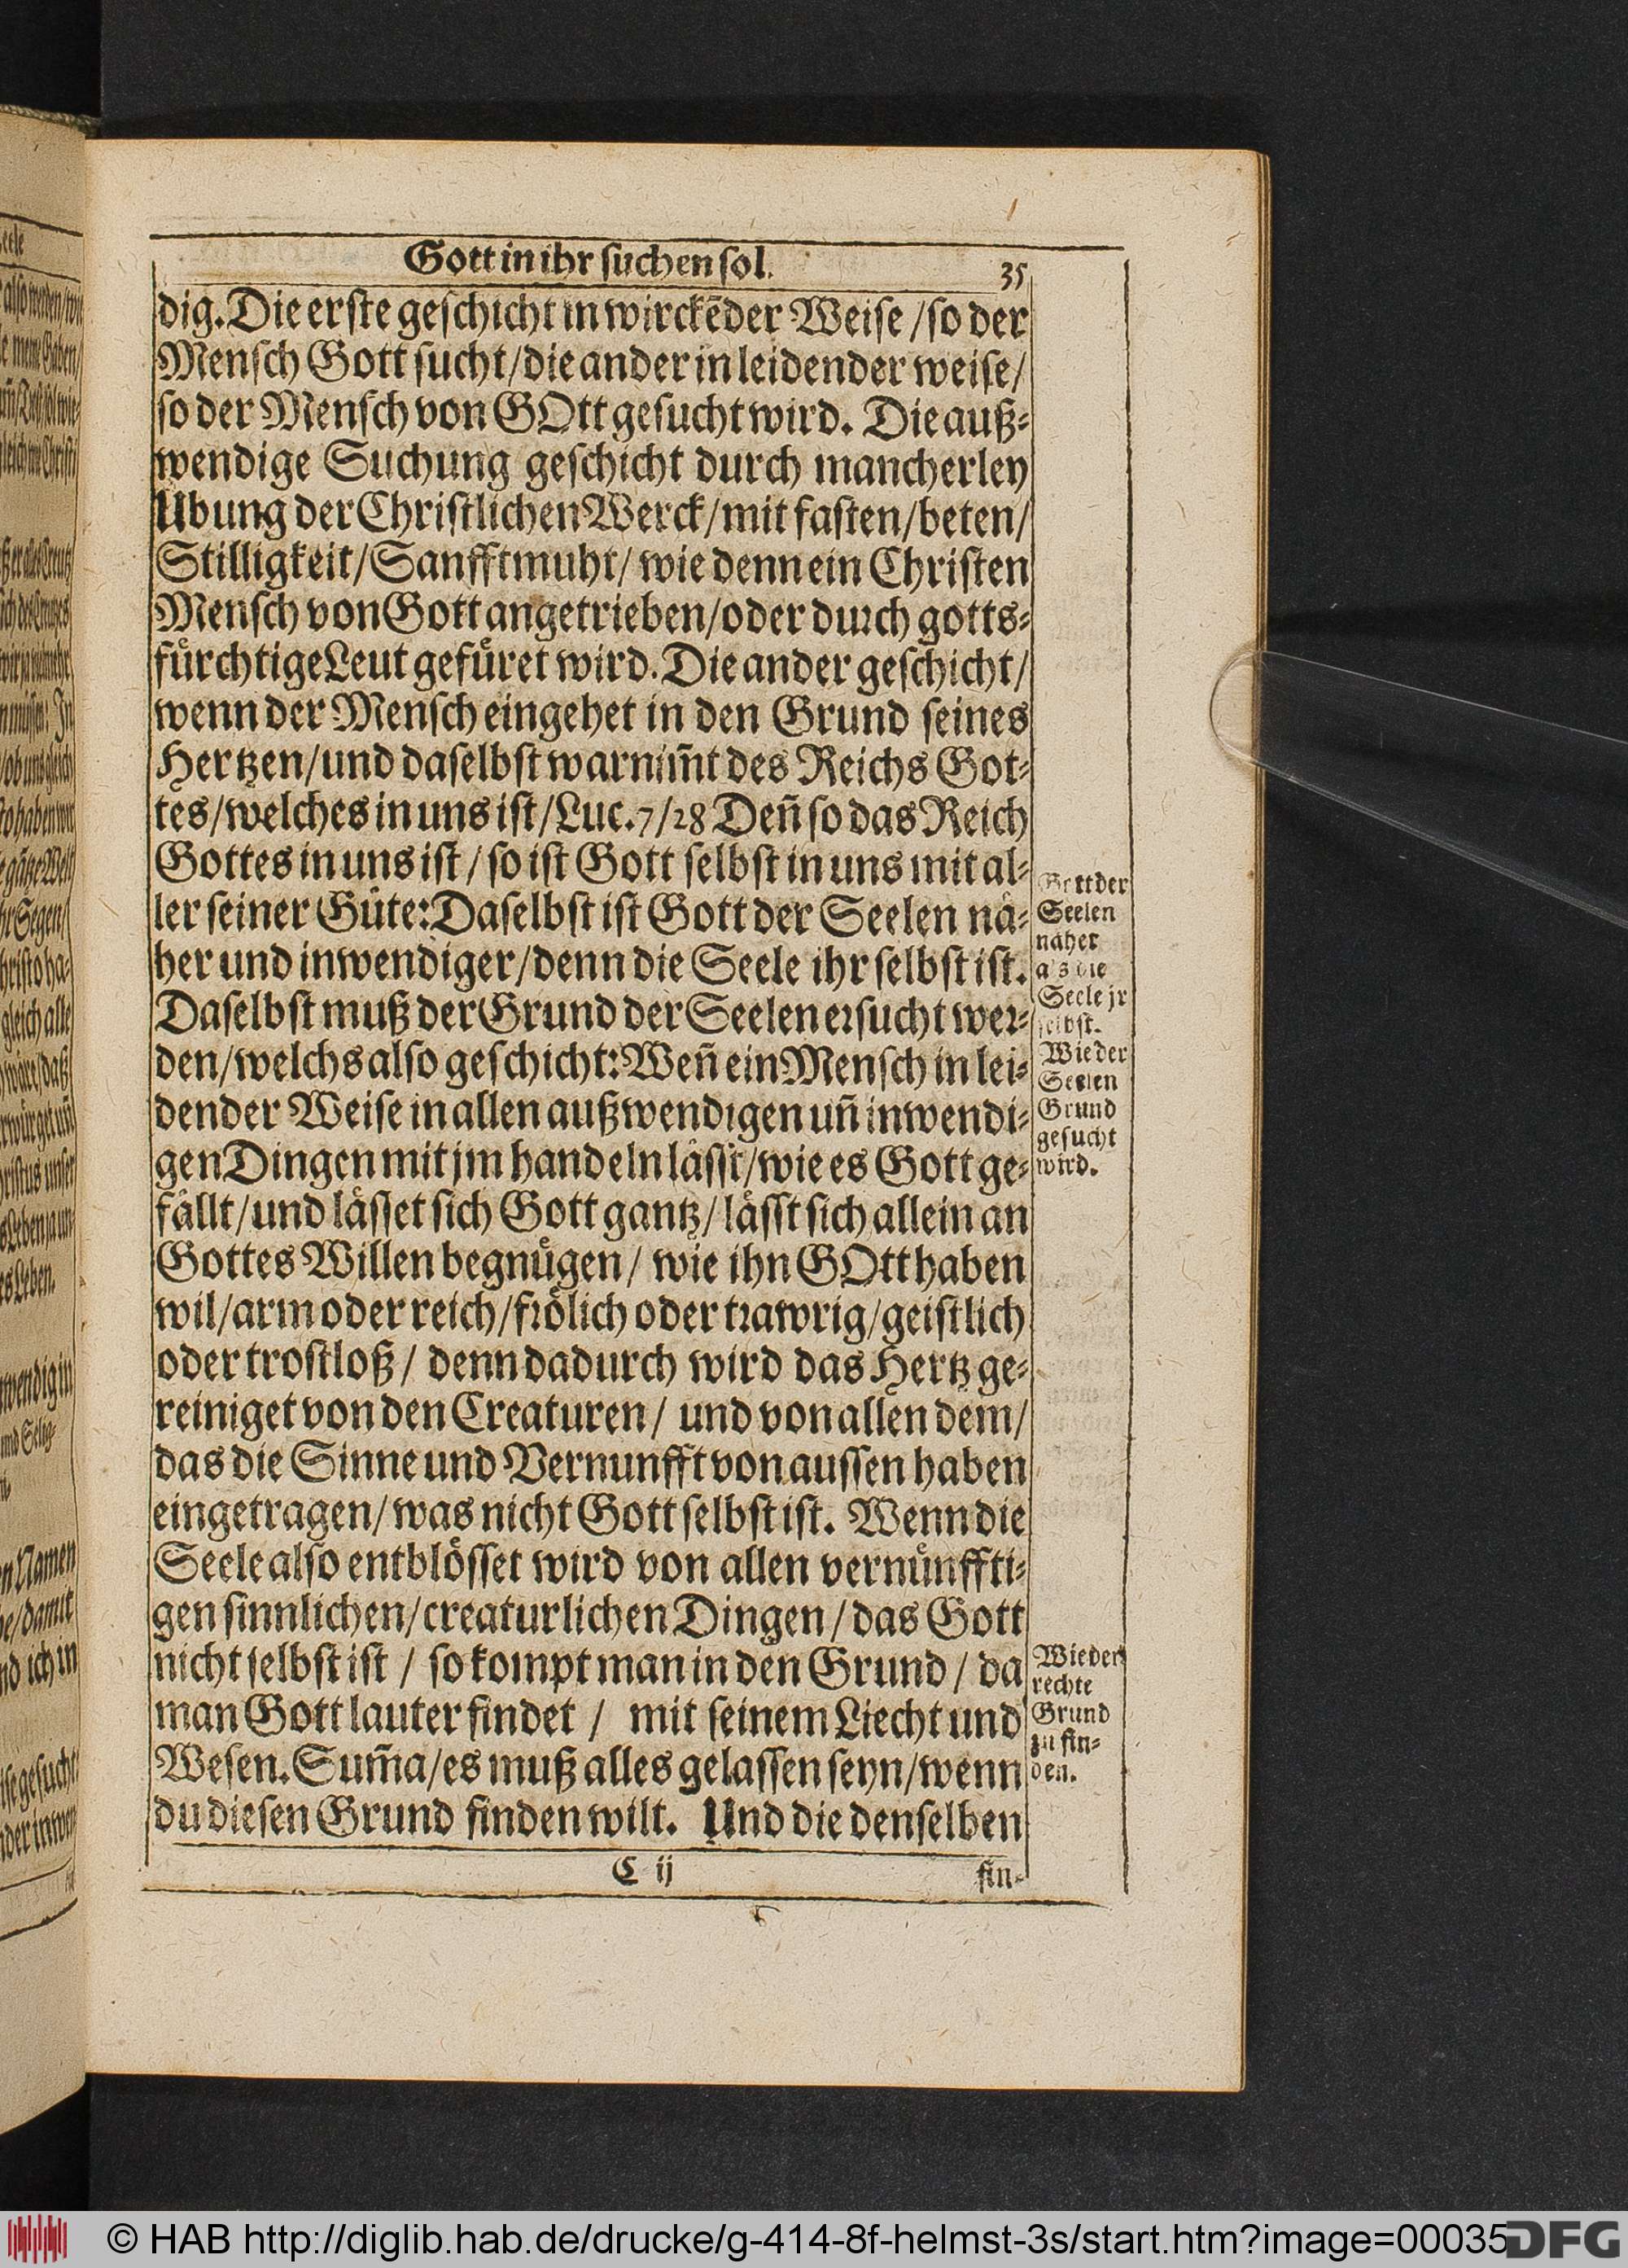 Gott in ihr suchen sol. 35
dig. Die erste geschicht in wirckēder Weise / so der
Mensch Gott sucht / die ander in leidender weise /
so der Mensch von GOtt gesucht wird. Die auß-
wendige Suchung geschicht durch mancherley
Ubung der Christlichen Werck / mit fasten / beten /
Stilligkeit / Sanfftmuht / wie denn ein Christen
Mensch von Gott angetrieben / oder durch gotts-
fürchtige Leut gefüret wird. Die ander geschicht /
wenn der Mensch eingehet in den Grund seines
Hertzen / und daselbst warnim̃t des Reichs Got-
tes / welches in uns ist / Luc. 7 / 28 Deñ so das Reich
Gottes in uns ist / so ist Gott selbst in uns mit al-
ler seiner Güte: Daselbst ist Gott der Seelen nä-
her und inwendiger / denn die Seele ihr selbst ist.
Daselbst muß der Grund der Seelen ersucht wer-
den / welchs also geschicht: Weñ ein Mensch in lei-
dender Weise in allen außwendigen uñ inwendi-
gen Dingen mit jm handeln lässt / wie es Gott ge-
fällt / und lässet sich Gott gantz / lässt sich allein an
Gottes Willen begnügen / wie ihn GOtt haben
wil / arm oder reich / frölich oder trawrig / geistlich
oder trostloß / denn dadurch wird das Hertz ge-
reiniget von den Creaturen / und von allen dem /
das die Sinne und Vernunfft von aussen haben
eingetragen / was nicht Gott selbst ist. Wenn die
Seele also entblösset wird von allen vernünffti-
gen sinnlichen / creaturlichen Dingen / das Gott
nicht selbst ist / so kompt man in den Grund / da
man Gott lauter findet / mit seinem Liecht und
Wesen. Sum̃a / es muß alles gelassen seyn / wenn
du diesen Grund finden wilt. Und die denselben
C ij fin-
Gott der
Seelen
näher
als die
Seele jr
selbst.
Wie der
Seelen
Grund
gesucht
wird.
Wie der
rechte
Grund
zu fin-
den.
© HAB http://diglib.hab.de/drucke/g-414-8f-helmst-3s/start.htm?image=00035
DFG